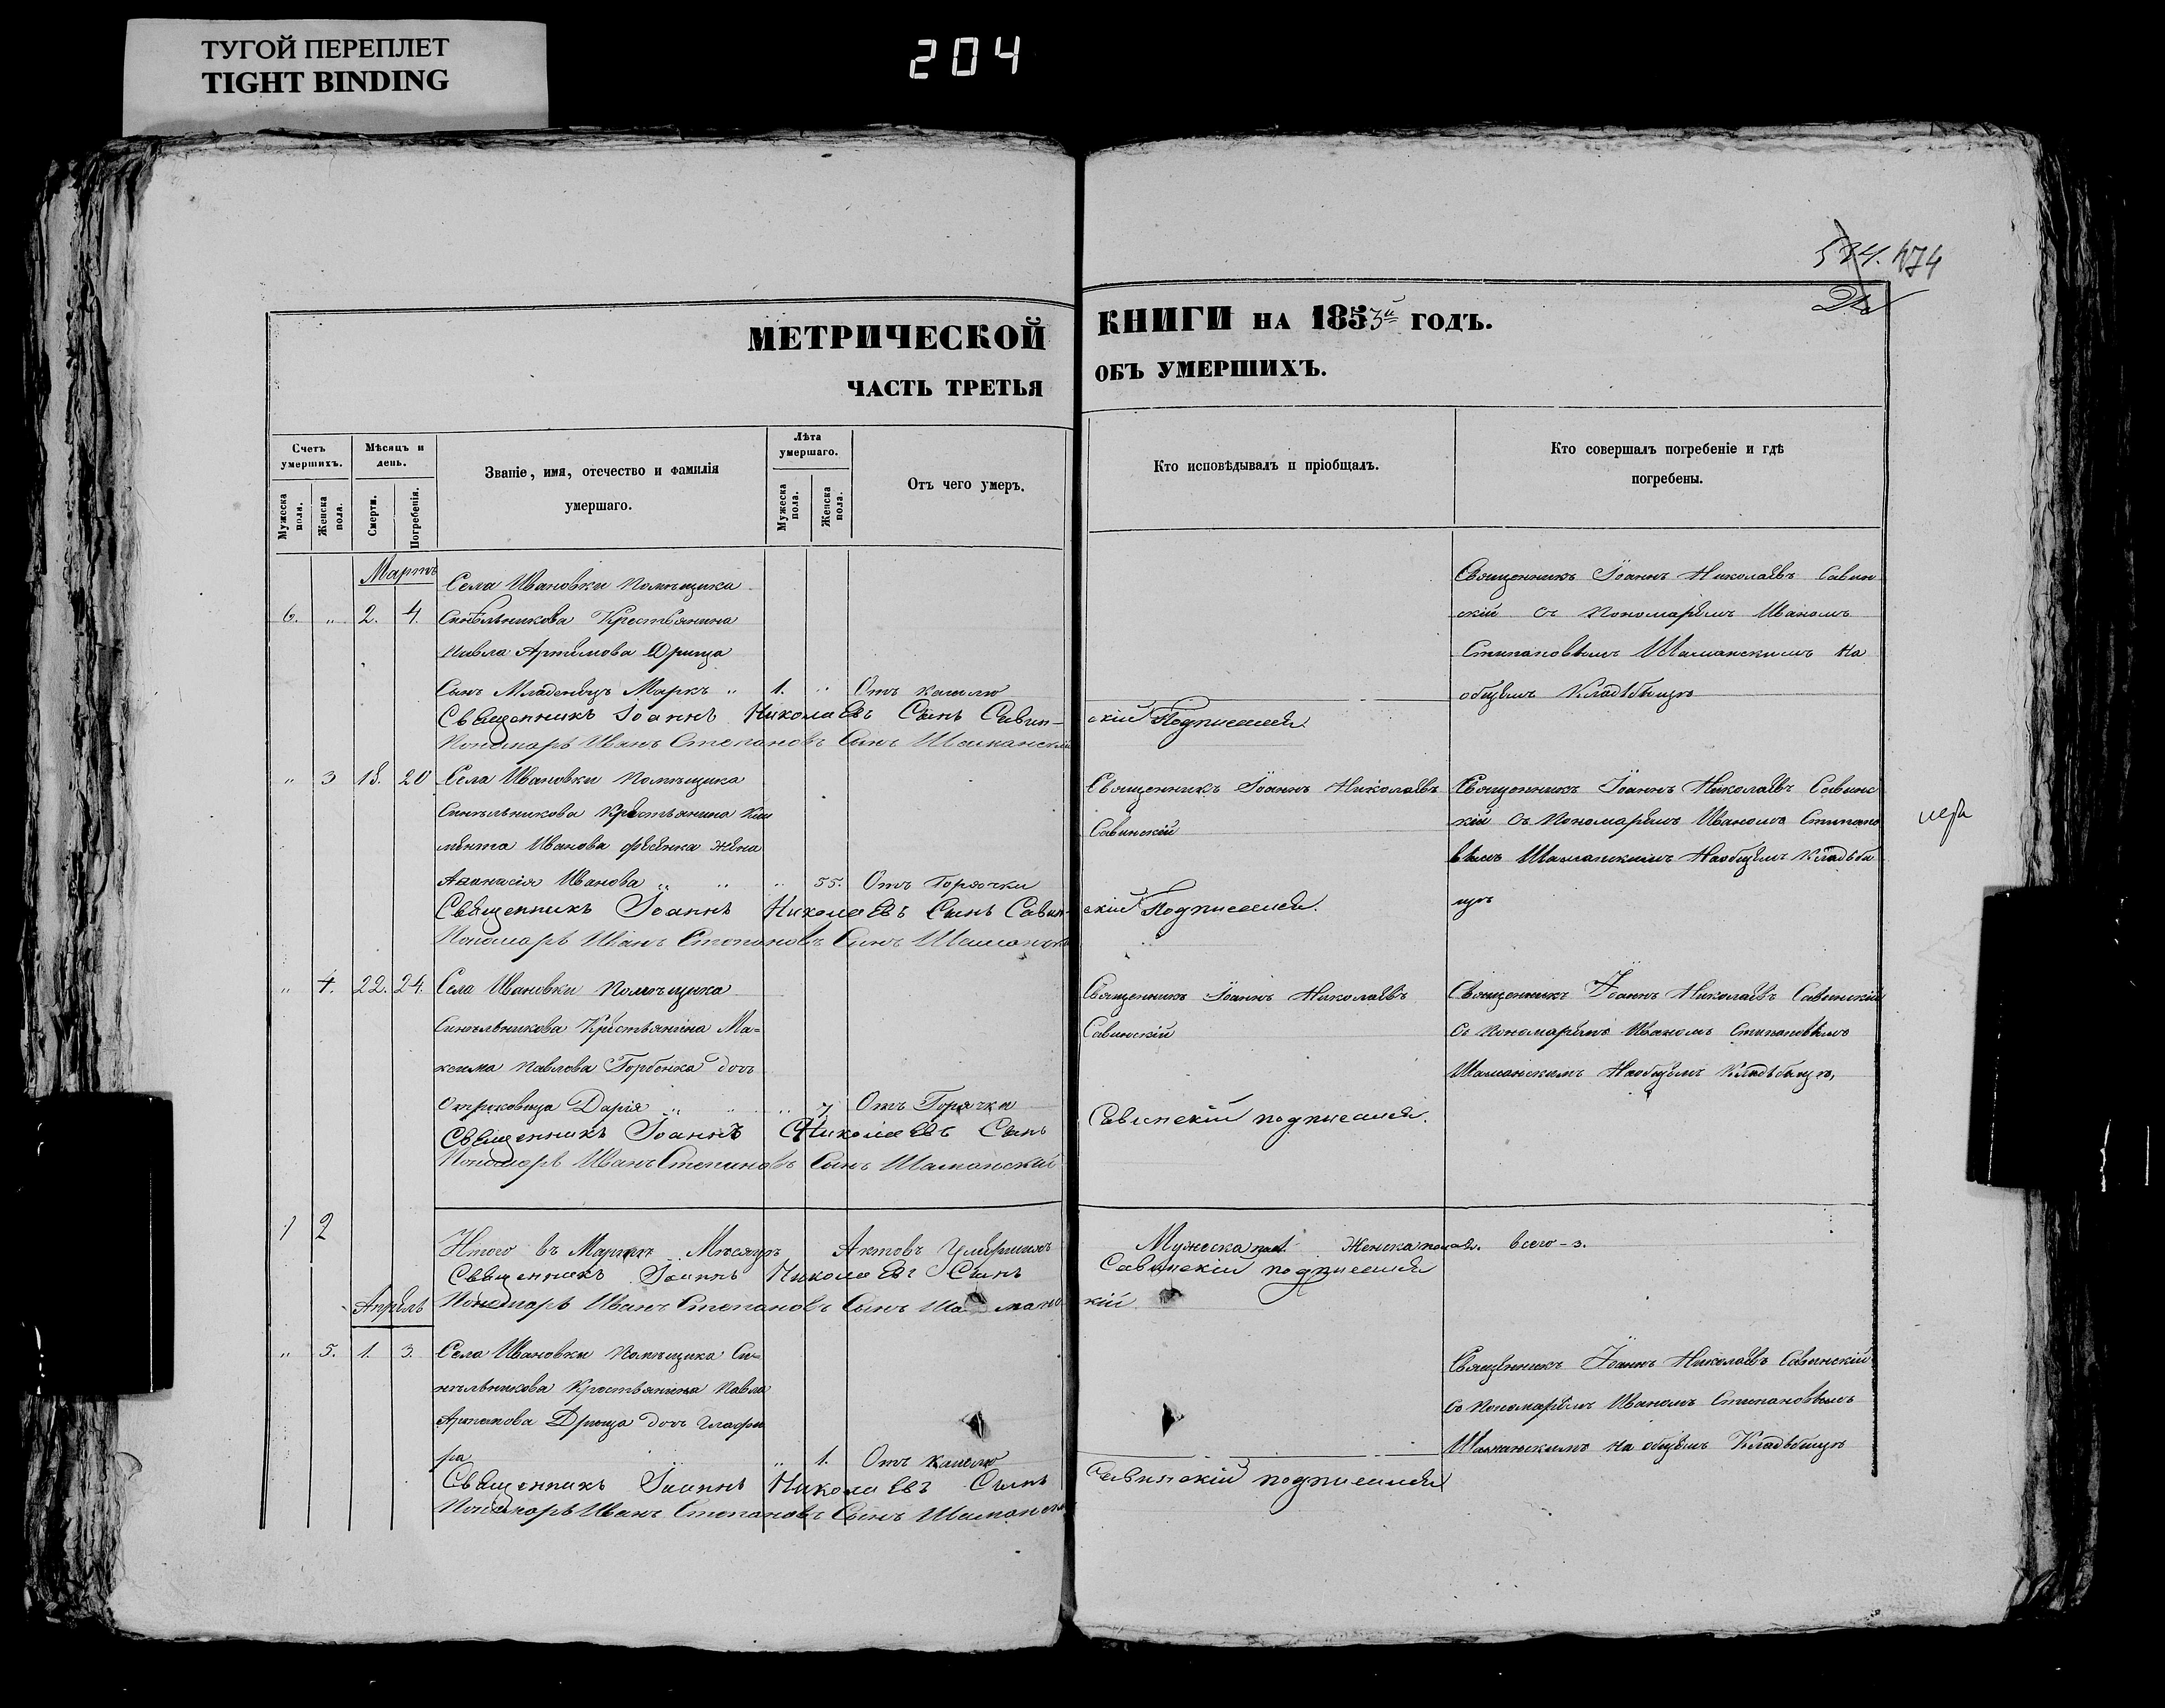 ТУГОЙ ПЕРЕПЛЕТ
TIGHT BINDING
204
474
МЕТРИЧЕСКОЙ КНИГИ НА 1853й ГОДЪ.
ЧАСТЬ ТРЕТЬЯ ОБЪ УМЕРШИХЪ.
Счетъ умершихъ.
Мужеска пола.
Женска пола.
Мѣсяцъ и день.
Смерти.
Погребенія.
Званіе, имя, отечество и фамилія
умершаго.
Лѣта умершаго.
Мужеска пола.
Женска пола.
Отъ чего умеръ.
Кто исповѣдывалъ и пріобщалъ.
Кто совершалъ погребеніе и гдѣ
погребены.
Мартъ
6. " 2. 4.
Села Ивановки Помѣщика
Синѣльникова Крестьянина
Павла Артемова Дрыща
Сынъ Младенецъ Маркъ " 1. " Отъ кашлю
Священникъ Іоаннъ Николаевъ Савин
скій съ Пономаремъ Иваномъ
Степановымъ Шаманскимъ На
общемъ Кладбищѣ
Священникъ Іоаннъ Николаевъ Сынъ Савин-скій Подписался
Пономарь Иванъ Степановъ Сынъ Шаманскій
" 3 18. 20
Села Ивановки Помѣщика
Синѣльникова Крестьянина Кли
мента Иванова жена
Афанасія Иванова " " " 55. Отъ Горячки
Священникъ Іоаннъ Николаевъ
Савинскій
Священникъ Іоаннъ Николаевъ Савинс
кій съ Пономаремъ Иваномъ Степано
вымъ Шаманскимъ На общемъ Кладби
щѣ
Священникъ Іоаннъ Николаевъ Сынъ Савин-скій Подписался.
Пономарь Иванъ Степановъ Сынъ Шаманск
" 4. 22. 24.
Села Ивановки Помѣщика
Синѣльникова Крестьянина Ма-
ксима Павлова Горбенка дочь
Отроковица Дарія " " " 7 Отъ Горячки
Священникъ Іоаннъ Николаевъ
Савинскій
Священникъ Іоаннъ Николаевъ Савинскій
съ Пономаремъ Иваномъ Степановымъ
Шаманскимъ На общемъ Кладбищѣ,
Священникъ Іоаннъ Николаевъ Сынъ Савинскій подписался.
Пономарь Иванъ Степановъ Сынъ Шаманскій
1 2
Итого въ Мартѣ Мѣсяцѣ Актовъ Умершихъ Мужеска пола 1. Женска пола 2. всего - 3.
Священникъ Іоаннъ Николаевъ Сынъ Савинскій подписался
Пономарь Иванъ Степановъ Сынъ Шаманскій
Апрѣль
" 5. 1. 3.
Села Ивановки Помѣщика Си-
нѣльникова Крестьянина Павла
Артемова Дрыща дочь Глафи
ра " 1. Отъ кашлю
Священникъ Іоаннъ Николаевъ Савинскій
съ Пономаремъ Иваномъ Степановымъ
Шаманскимъ на общемъ Кладбищѣ
Священникъ Іоаннъ Николаевъ Сынъ Савинскій подписался
Пономарь Иванъ Степановъ Сынъ Шаманск